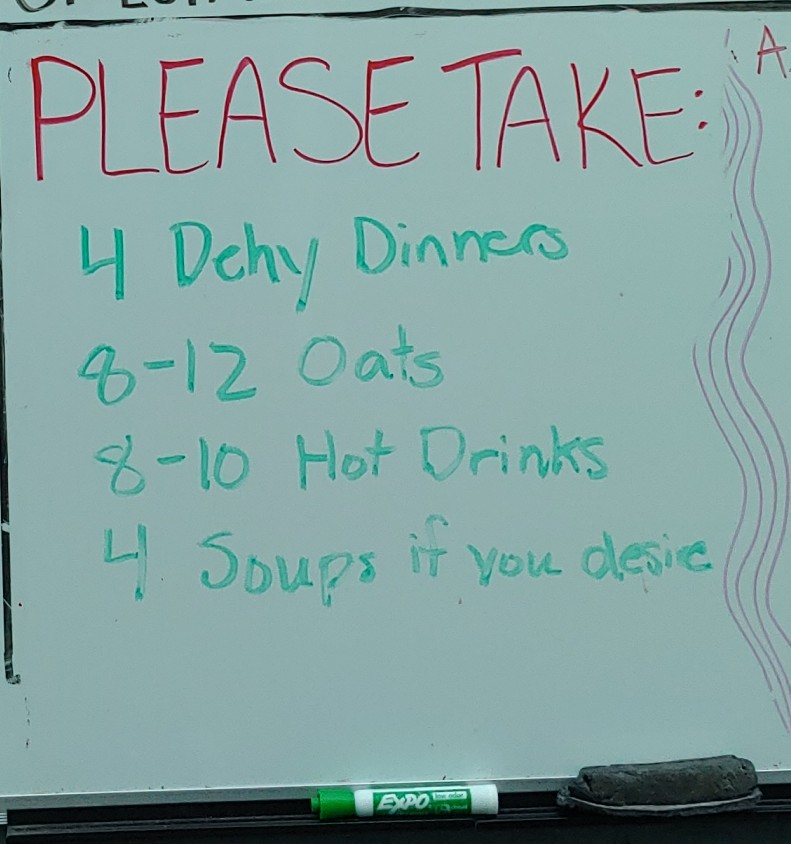 PLEASE TAKE:
A
4 Dehy Dinners
8-12 Oats
8-10 Hot Drinks
4 Soups if you desire
EXPO